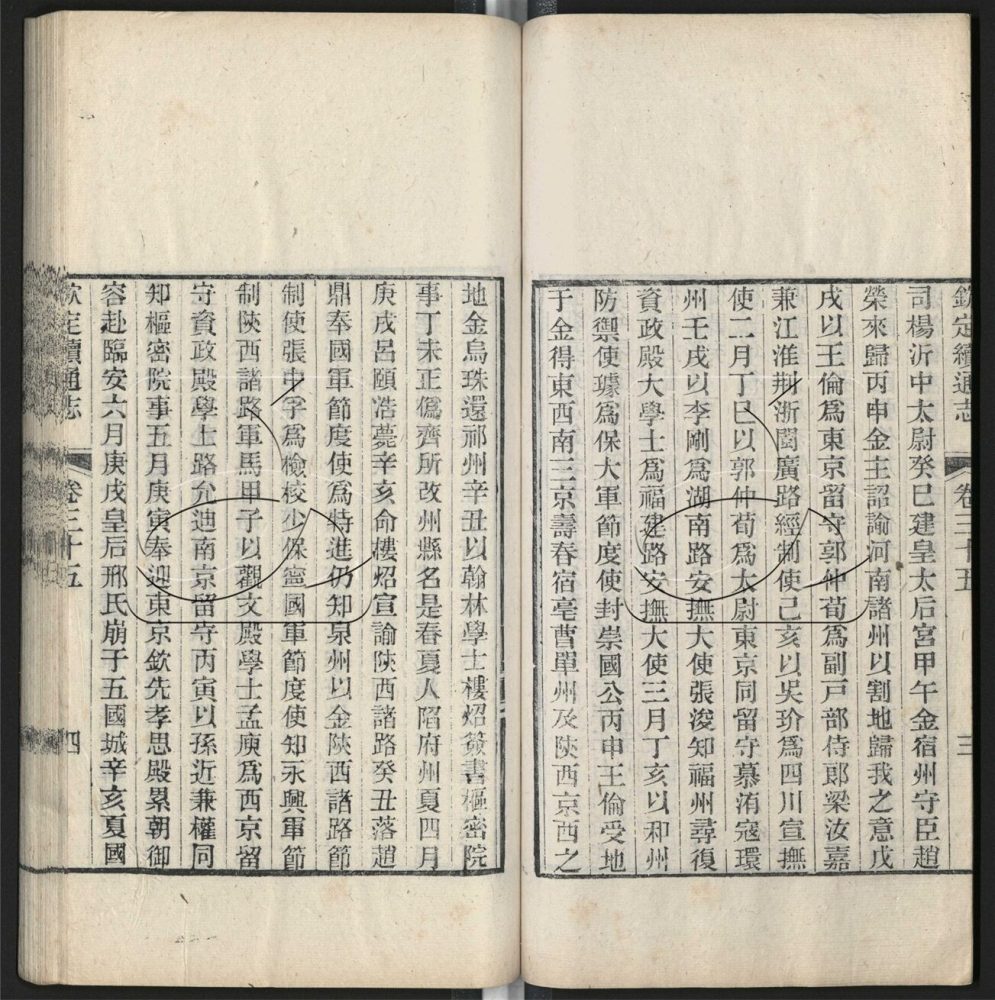 欽定續通志 卷三十五 三
司楊沂中太尉癸巳建皇太后宮甲午金宿州守臣趙
榮來歸丙申金主詔諭河南諸州以割地歸我之意戊
戌以王倫爲東京留守郭仲荀爲副戸部侍郎梁汝嘉
兼江淮荆浙閩廣路經制使己亥以吳玠爲四川宣撫
使二月丁巳以郭仲荀爲太尉東京同留守慕洧寇環
州壬戌以李剛爲湖南路安撫大使張浚知福州尋復
資政殿大學士爲福建路安撫大使三月丁亥以和州
防禦使璩爲保大軍節度使封崇國公丙申王倫受地
于金得東西南三京壽春宿亳曹單州及陝西京西之
地金烏珠還祁州辛丑以翰林學士樓炤簽書樞密院
事丁未正僞齊所改州縣名是春夏人陷府州夏四月
庚戌呂頤浩薨辛亥命樓炤宣諭陝西諸路癸丑落趙
鼎奉國軍節度使爲特進仍知泉州以金陝西諸路節
制使張中孚爲檢校少保寧國軍節度使知永興軍節
制陝西諸路軍馬甲子以觀文殿學士孟庾爲西京留
守資政殿學士路允迪南京留守丙寅以孫近兼權同
知樞密院事五月庚寅奉迎東京欽先孝思殿累朝御
容赴臨安六月庚戌皇后邢氏崩于五國城辛亥夏國
欽定續通志 卷三十五 四